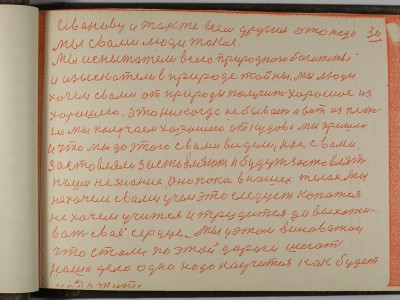 Иванову и также всем другим это надо 36
мы с вами люди такие.
Мы испытатели всего природного богатства
и изыскатели в природе тайны. мы люди
хочем с вами от природы получит хорошое из
хорошего. Это никогда не бывает а вот из плохо-
го мы получаем хорошего от
и что мы до этого с вами видели, нас с вами
заставляли заставляют и будут заставлят
наше незнание. оно пока в наших телах. мы
не хочем с вами учим это следует копатся
не хочем учится и трудится до выхажи-
вать свая сердце. Мы у этом виноватои
что стали по этой дороги шагат
наше дело одно надо научится как будет
надо жит